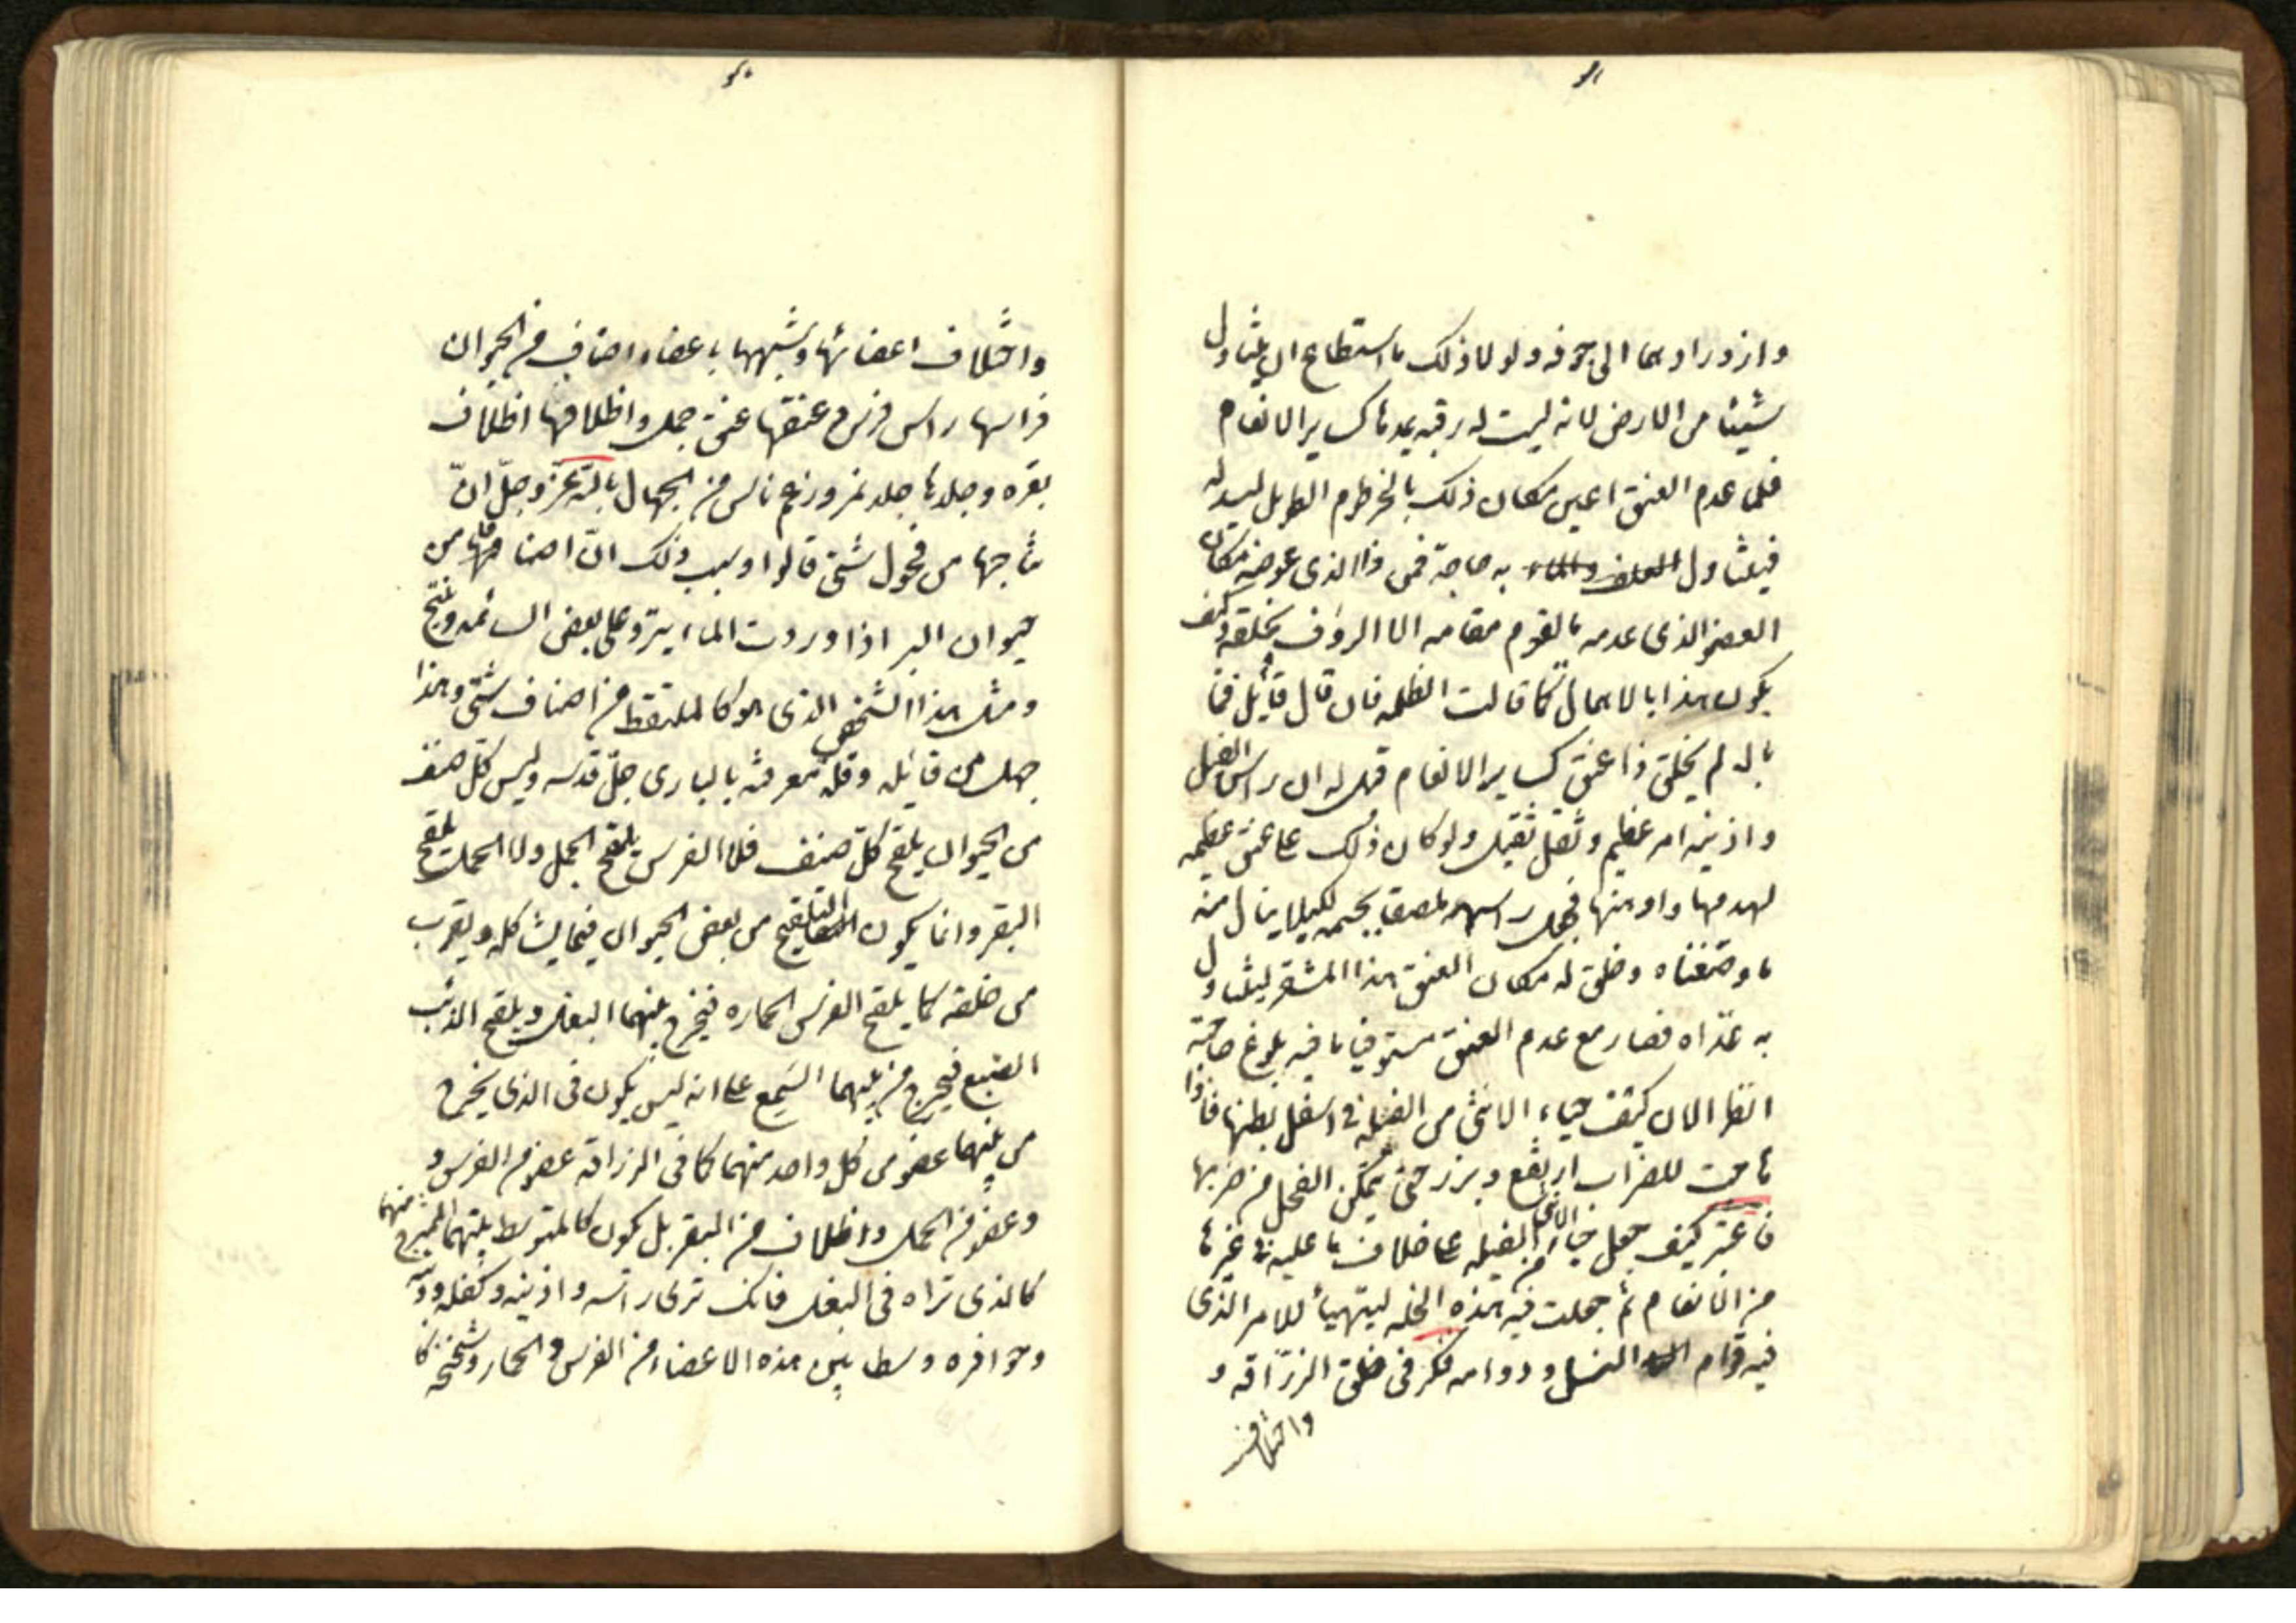 وازدرادهما الى جوفه ولولا ذلك ما استطاع ان يتناول
شيئا من الارض لانه ليست له رقبه يمدها كساير الانعام
فلما عدم العنق اعين مكان ذلك بالخرطوم الطويل ليسدله
فيتناول به حاجته فمن ذا الذى عوضه مكان
العضو الذى عدمه ما يقوم مقامه الا الرؤف بخلقه وكيف
يكون هذا بالاهمال كما قالت الظلمه فان قال قائل فما
باله لم يخلق ذا عنق كساير الانعام قيل له ان راس الفيل
واذنيه امر عظيم وثقل ثقيل ولو كان ذلك على عنق عظيمه
لهدمها واوهنها فجعل راسه ملصقا بجسمه لكيلا ينال منه
ما وصفناه وخلق له مكان العنق هذا المشفر ليتناول
به غذاه فصار مع عدم العنق مستوفيا ما فيه بلوغ حاجته
انظر الان كيف حياء الانثى من الفيله فى اسفل بطنها فاذا
هاجت للضراب ارتفع وبرز حتى يتمكن الفحل من ضربها
فاعتبر كيف جعل حيا الانثى من الفيله على خلاف ما عليه فى غيرها
من الانعام ثم جعلت فيه هذه الخله ليتهيأ للامر الذى
فيه قوام النسل ودوامه فكر فى خلق الزرافه و
واختلاف
واختلاف اعضائها وشبهها باعضاء اصناف من الحيوان
فراسها راس فرس وعنقها عنق جمل واظلافها اظلاف
بقره وجلدها جلد نمر وزعم ناس من الجهال بالله عز وجل ان
نتاجها من فحول شتى قالوا وسبب ذلك ان اصنافا من
حيوان البر اذا وردت الماء ينزو على بعض السائمه وينتج
ومثل هذا الشخص الذى هو كالملتقط من اصناف شتى وهذا
جهل من قائله وقله معرفته بالبارى جل قدسه وليس كل صنف
من الحيوان يلقح كل صنف فلا الفرس يلقح الجمل ولا الجمل يلقح
البقر وانما يكون التلقيح من بعض الحيوان فيما يشاكله ويقرب
من خلقه كما يلقح الفرس الحماره فيخرج بينهما البغل ويلقح الذئب
الضبع فيخرج من بينهما السمع على انه ليس يكون فى الذى يخرج
من بينهما عضو من كل واحد منهما كما فى الزرافه عضو من الفرس و
وعضو من الجمل واظلاف من البقر بل يكون كالمتوسط بينهما الممتزج منهما
كالذى تراه فى البغل فانك ترى راسه واذنيه وكفله وذنبه
وحوافره وسطا بين هذه الاعضاء من الفرس والحمار وشحيجه كا